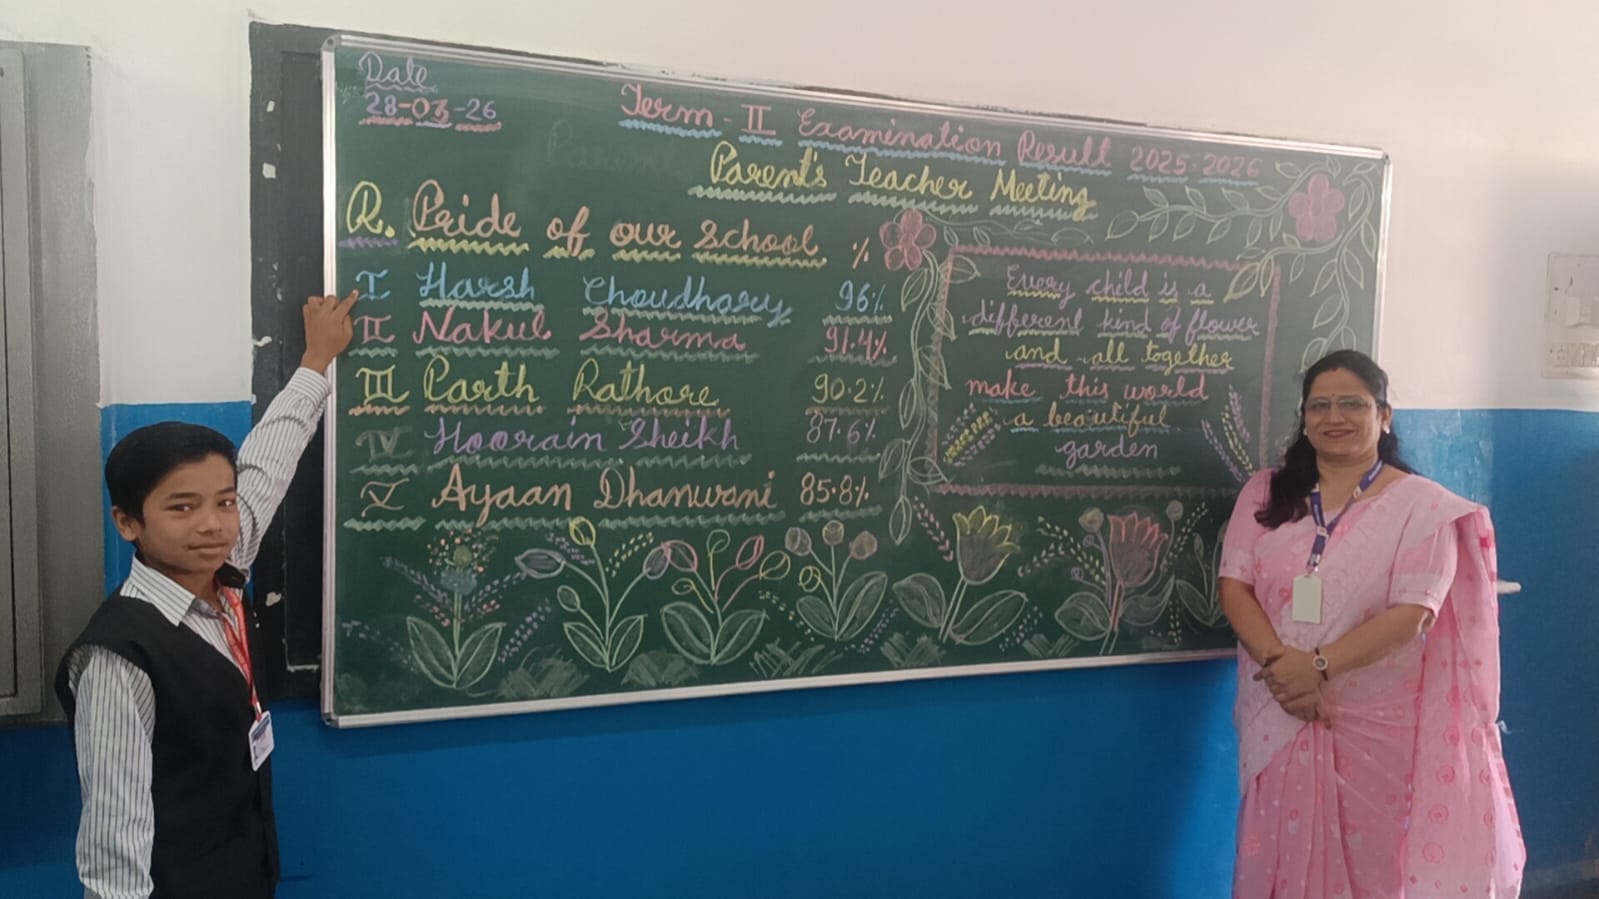 Date
28-03-26
Term - II Examination Result 2025-2026
Parent's Teacher Meeting
R. Pride of our school %
I Harsh Choudhary 96%
II Nakul Sharma 91.4%
III Parth Rathore 90.2%
IV Hoorain Sheikh 87.6%
V Ayaan Dhanwani 85.8%
Every child is a
different kind of flower
and all together
make this world
a beautiful
garden